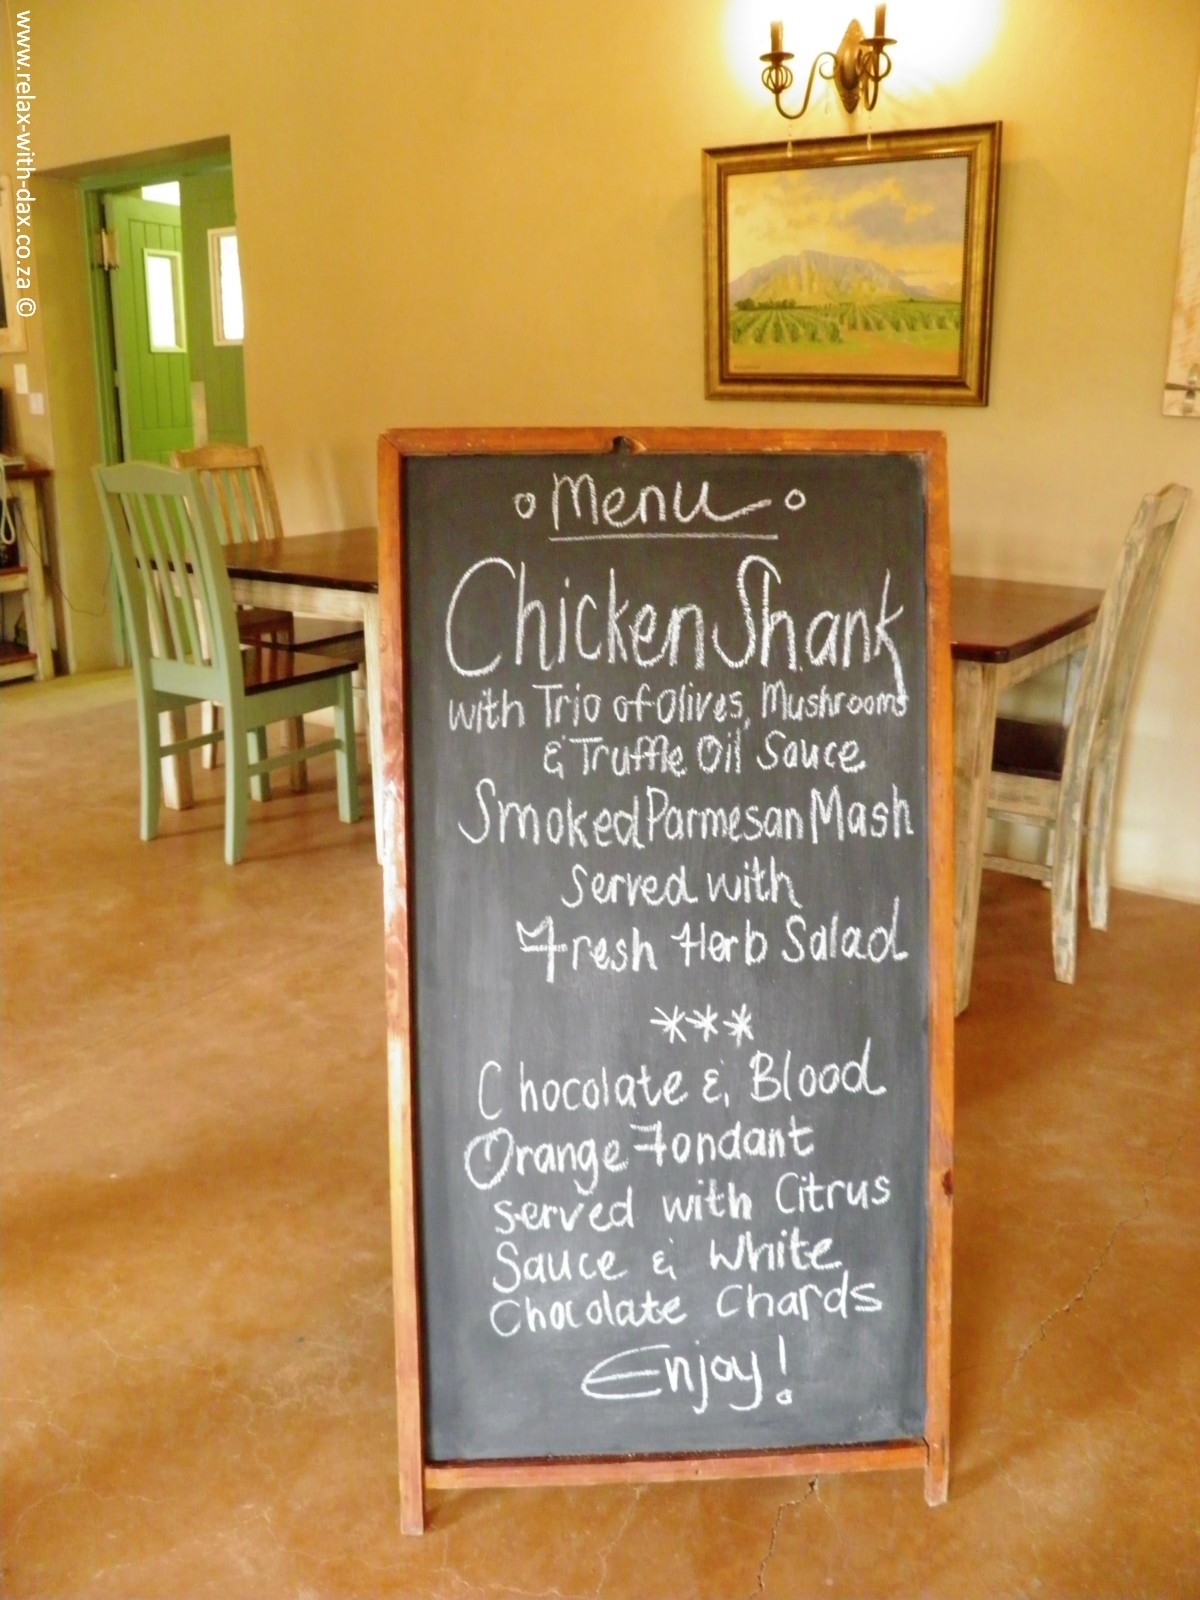 www.relax-with-dax.co.za ©
Menu
Chicken Shank
with Trio of Olives, Mushrooms
& Truffle Oil Sauce
Smoked Parmesan Mash
Served with
Fresh Herb Salad
***
Chocolate & Blood
Orange Fondant
served with Citrus
Sauce & White
Chocolate Chards
Enjoy!